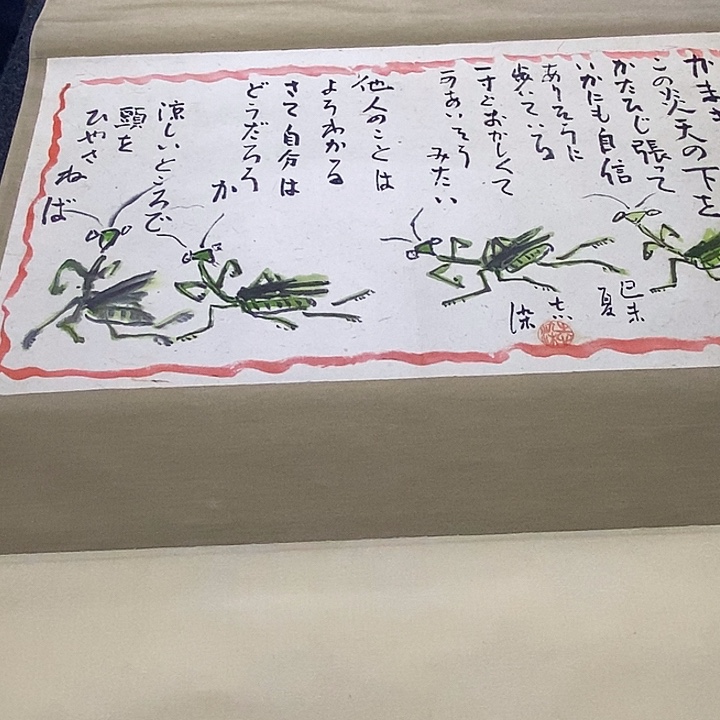 かまき
この炎天の下を
かたひじ張って
いかにも自信
ありそうに
歩いている
一寸とおかしくて
かあいそう
みたい
他人のことは
よくわかる
さて自分は
どうだろう
か
涼しいところで
頭を
ひやさ
ねば
己未
夏